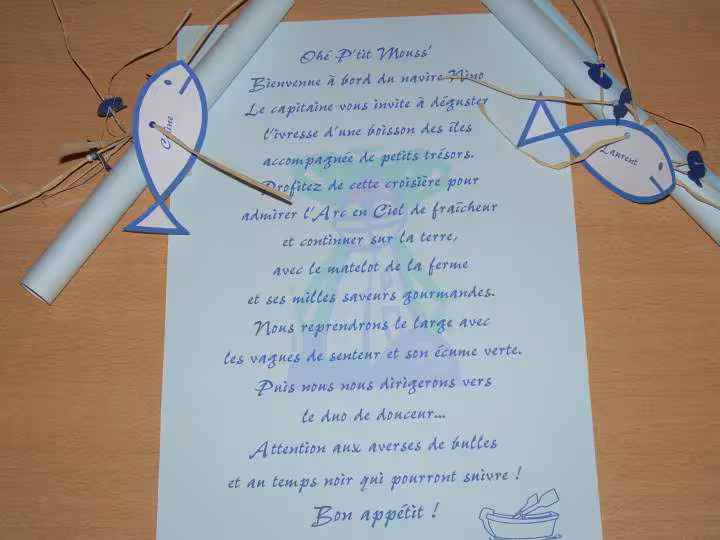 Ohé P'tit Mouss'
Bienvenue à bord du navire Nino
Le capitaine vous invite à déguster
l'ivresse d'une boisson des îles
accompagnée de petits trésors.
Profitez de cette croisière pour
admirer l'Arc en Ciel de fraîcheur
et continuer sur la terre,
avec le matelot de la ferme
et ses milles saveurs gourmandes.
Nous reprendrons le large avec
les vagues de senteur et son écume verte.
Puis nous nous dirigerons vers
le duo de douceur...
Attention aux averses de bulles
et au temps noir qui pourront suivre !
Bon appétit !
Laurent